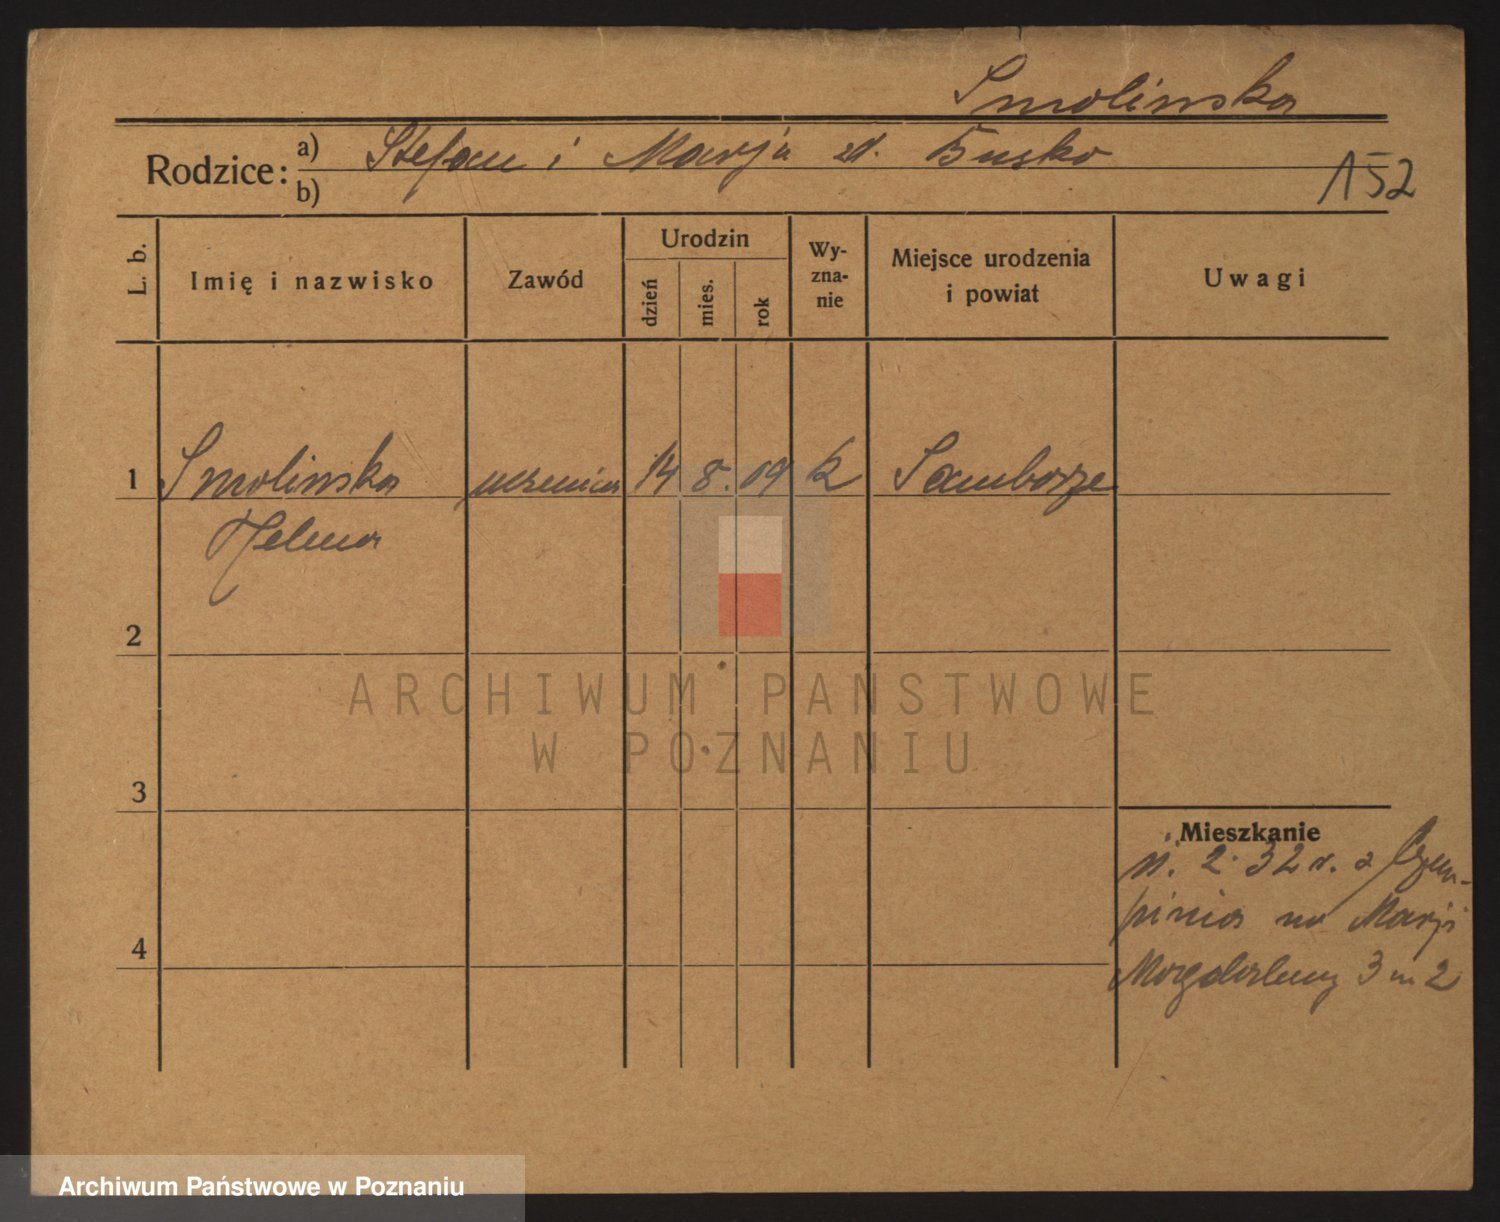 Smolinska
Rodzice: a) Stefan i Marja zd. Busko
b)
152
L. b.
Imię i nazwisko
Zawód
Urodzin
dzień
mies.
rok
Wy-
zna-
nie
Miejsce urodzenia
i powiat
Uwagi
1 Smolinska uczenica 14 8. 09 k Samborze
Helena
2
3
4
ARCHIWUM PAŃSTWOWE
W POZNANIU
Mieszkanie
2. 32 r. z Czem-
pinia na Marji
Magdaleny 3 m 2
Archiwum Państwowe w Poznaniu